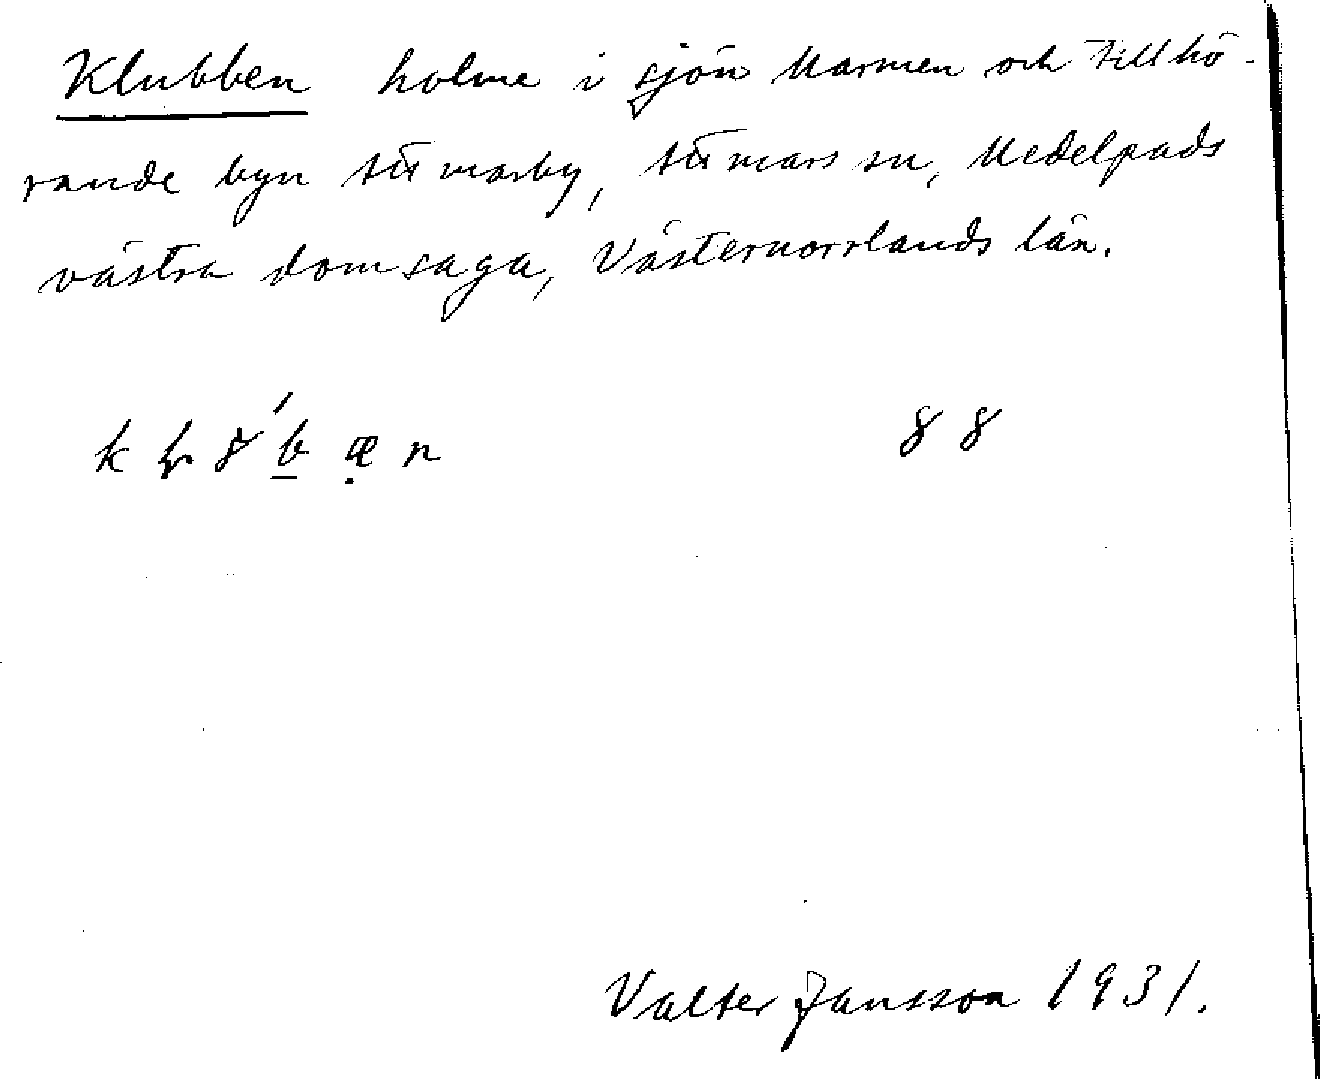 Klubben holme i sjön Marmen och tillhö-
rande byn Attmarby, Attmars sn, Medelpads
västra domsaga, Västernorrlands län.
88
Valter Jansson 1931.